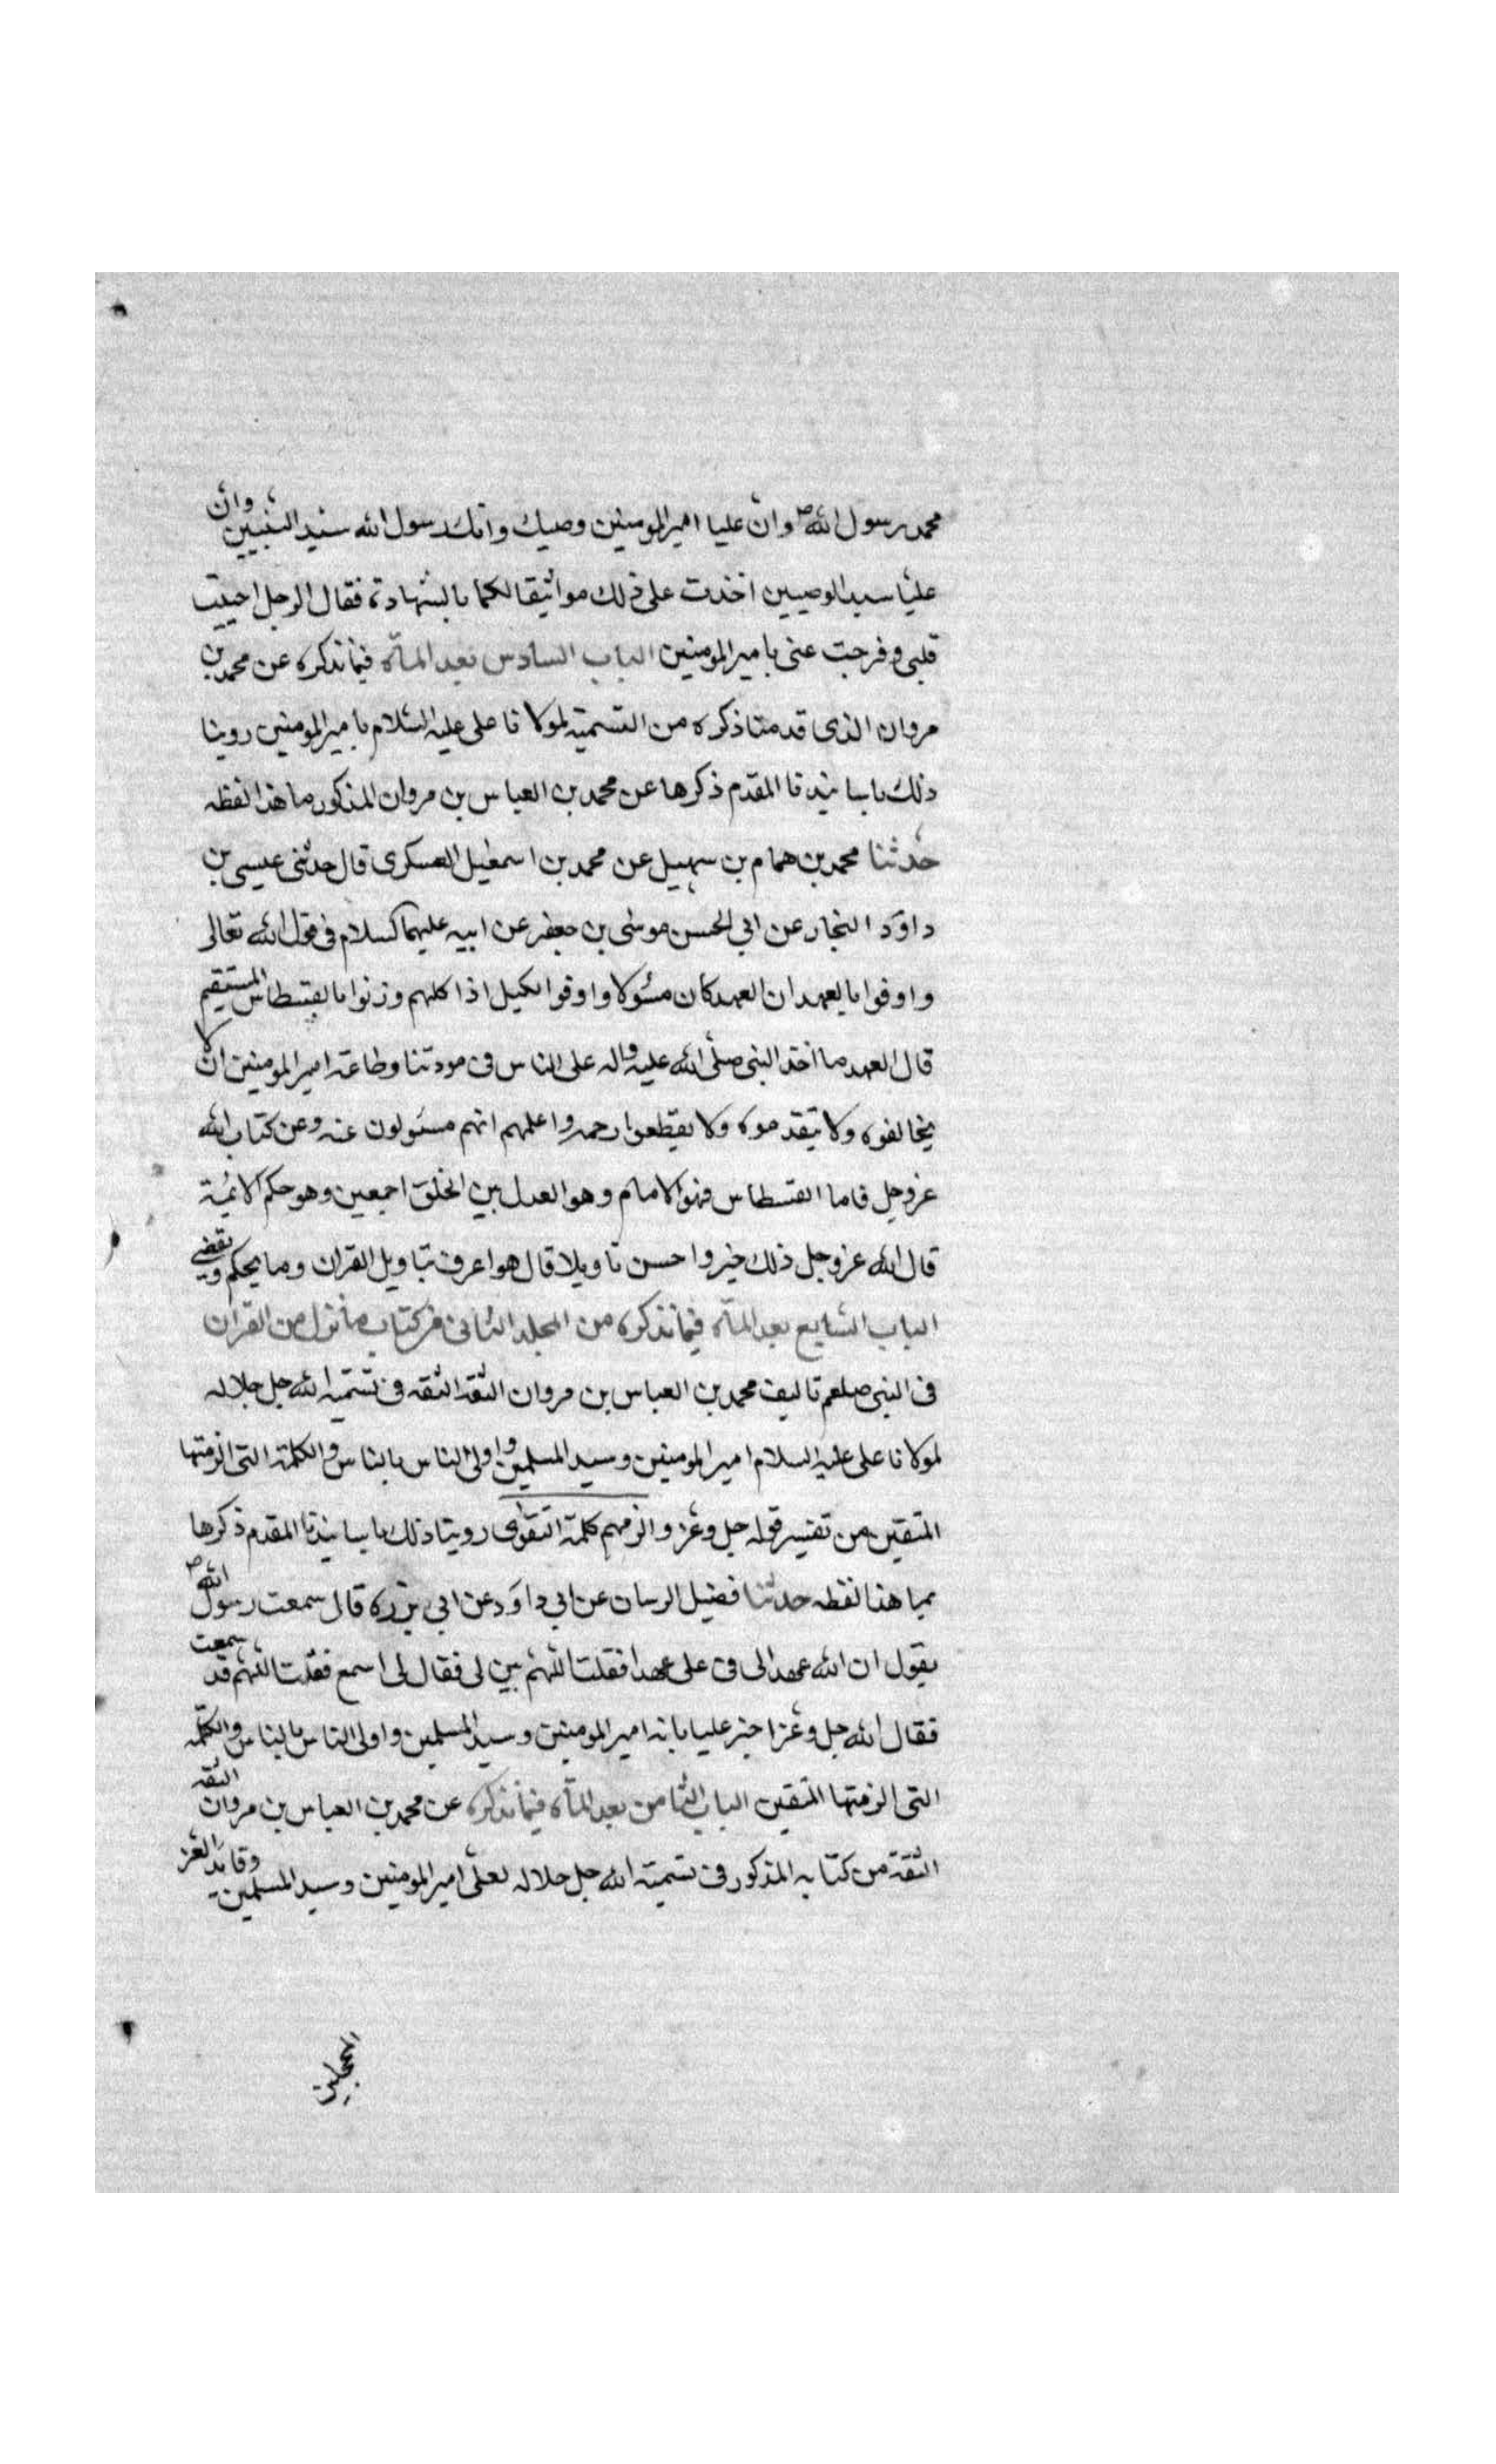 محمد رسول الله ص وان عليا امير المومنين وصيك وانك رسول الله سيد النبيين وان
عليا سيد الوصيين اخذت على ذلك مواثيقا لكما بالشهادة فقال الرجل احييت
قلبى وفرجت عنى يا امير المومنين الباب السادس بعد المأة فيما نذكره عن محمد بن
مروان الذى قدمنا ذكره من التسمية لمولانا على عليه السلام بامير المومنين روينا
ذلك باسانيدنا المقدم ذكرها عن محمد بن العباس بن مروان المذكور ما هذا لفظه
حدثنا محمد بن همام بن سهيل عن محمد بن اسمعيل العسكرى قال حدثنى عيسى بن
داود النجار عن ابى الحسن موسى بن جعفر عن ابيه عليهما السلام فى قول الله تعالى
واوفوا بالعهد ان العهد كان مسئولا واوفوا الكيل اذا كلتم وزنوا بالقسطاس المستقيم
قال العهد ما اخذ النبى صلى الله عليه واله على الناس فى مودتنا وطاعة امير المومنين ان لا
يخالفوه ولا يتقدموه ولا يقطعوا رحمه واعلمهم انهم مسئولون عنه وعن كتاب الله
عز وجل فاما القسطاس فهو الامام وهو العدل بين الخلق اجمعين وهو حكم الائمة
قال الله عز وجل ذلك خير واحسن تاويلا قال هو اعرف بتاويل القران وما يحكم ويقضى
الباب السابع بعد المأة فيما نذكره من المجلد الثانى من كتاب ما نزل من القران
فى النبى صلعم تاليف محمد بن العباس بن مروان الثقة الثقة فى تسمية الله جل جلاله
لمولانا على عليه السلام امير المومنين وسيد المسلمين واولى الناس بالناس والكلمة التى الزمتها
المتقين من تفسير قوله جل وعز والزمهم كلمة التقوى روينا ذلك باسانيدنا المقدم ذكرها
بما هذا لفظه حدثنا فضيل الرسان عن ابى داود عن ابى برزه قال سمعت رسول الله ص
يقول ان الله عهد الى فى على عهدا فقلت اللهم بين لى فقال لى اسمع فقلت اللهم قد سمعت
فقال الله جل وعز اخبر عليا بانه امير المومنين وسيد المسلمين واولى الناس بالناس والكلمة
التى الزمتها المتقين الباب الثامن بعد المأة فيما نذكره عن محمد بن العباس بن مروان الثقة
الثقة من كتابه المذكور فى تسمية الله جل جلاله لعلى امير المومنين وسيد المسلمين وقائد الغر
المحجلين